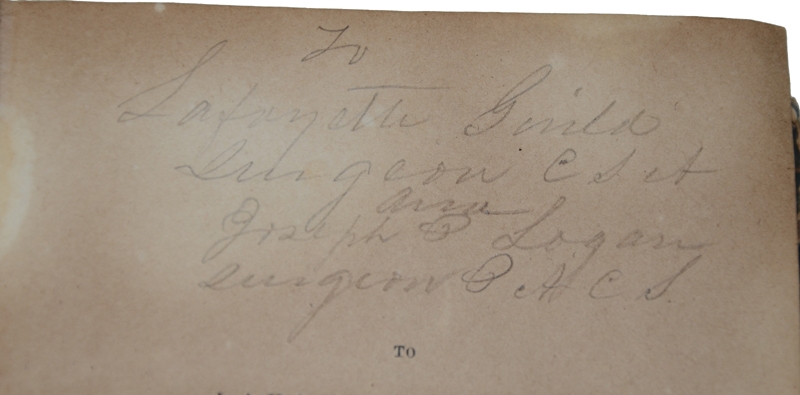 To
Lafayette Guild
Surgeon C S A
and
Joseph P Logan
Surgeon P A C S.
TO